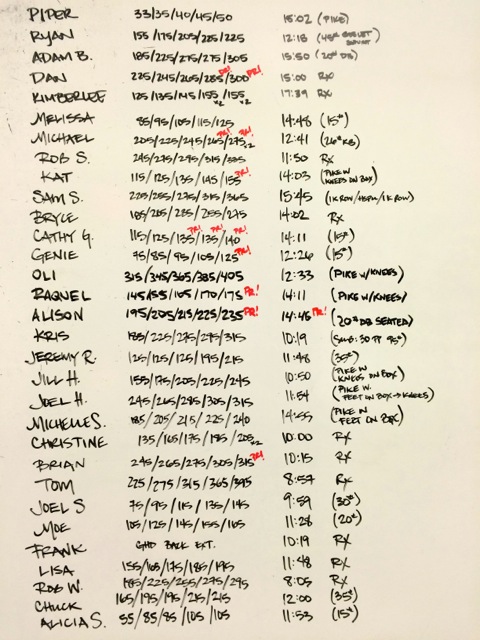 PIPER 33/35/40/45/50 15:02 (PIKE)
RYAN 155/175/205/225/225 12:18
ADAM B. 185/225/275/275/305 15:50 (20# DB)
DAN 225/245/265/285/300 PR! 15:00 RX
KIMBERLEE 125/135/145/155/155 x2 x2 17:39 RX
MELISSA 85/95/105/115/125 14:48 (15#)
MICHAEL 205/225/245/265/275 x2 PR! PR! 12:41 (26# KB)
ROB S. 245/275/295/315/335 11:50 RX
KAT 115/125/135/145/155 PR! 14:03 (PIKE W/ KNEES ON BOX)
SAM S. 225/255/275/315/365 15:45 (1K ROW/HSPU/1K ROW)
BRYCE 185/215/235/255/275 14:02 RX
CATHY G. 115/125/135/135/140 PR! PR! PR! 14:11 (15#)
GENIE 75/85/95/105/110 PR! 12:26 (15#)
OLI 315/345/365/385/405 12:33 (PIKE W/KNEES)
RAQUEL 145/155/165/170/175 PR! 14:11 (PIKE W/KNEES)
ALISON 195/205/215/225/235 PR! 14:46 PR! (20# DB SEATED)
KRIS 185/225/275/295/315 10:19 (SUB: 30 PP 95#)
JEREMY R. 125/125/125/195/215 11:48 (35#)
JILL H. 155/175/205/225/245 10:50 (PIKE W KNEES ON BOX)
JOEL H. 245/265/285/305/315 11:54 (PIKE W. FEET ON BOX → KNEES)
MICHELLE S. 185/205/215/225/240 14:55 (PIKE W FEET ON BOX)
CHRISTINE 135/165/175/185/205 x2 10:00 RX
BRIAN 245/265/275/305/315 PR! 10:15 RX
TOM 225/275/315/365/395 8:57 RX
JOEL S 75/95/115/135/145 9:59 (30#)
MOE 105/125/145/155/165 11:28 (20#)
FRANK GHD BACK EXT. 10:19 RX
LISA 155/165/175/185/195 11:48 RX
ROB W. 185/225/255/275/295 8:05 RX
CHUCK 165/195/195/215/215 12:00 (35#)
ALICIA S. 55/85/95/105/105 11:53 (15#)